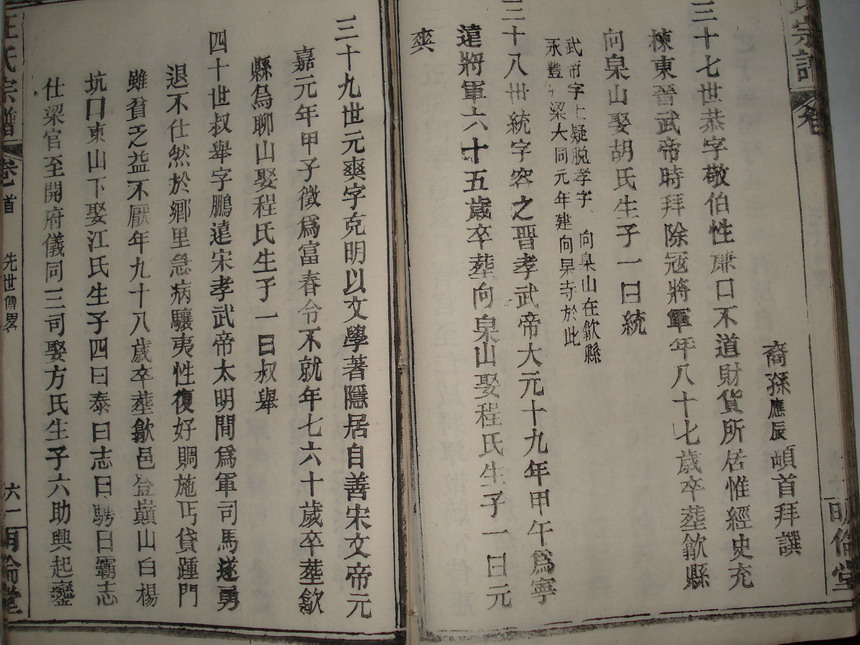 裔孫應辰頓首拜譔
三十七世恭字敬伯性康口不道財貨所居惟經史充
棟東晉武帝時拜除冦將軍年八十七歲卒塟歙縣
向杲山娶胡氏生子一曰統
武帝字上疑脫孝字 向杲山在歙縣
永豐 梁大同元年建向杲寺於此
三十八世統字容之晉孝武帝大元十九年甲午爲寧
遠將軍六十五歲卒塟向杲山娶程氏生子一曰元
奭
三十九世元奭字克明以文學著隱居自善宋文帝元
嘉元年甲子徵爲富春令不就年七六十歲卒塟歙
縣烏聊山娶程氏生子一曰叔舉
四十世叔舉字鵬遠宋孝武帝太明間爲軍司馬遂勇
退不仕然於鄉里急病驤夷性復好賙施丐貸踵門
雖貧乏益不厭年九十八歲卒塟歙邑登巔山白楊
坑口東山下娶江氏生子四曰泰曰志曰騁曰霸志
仕梁官至開府儀同三司娶方氏生子六助興起鑾
汪氏宗譜 卷首 先世傳畧 六一 明倫堂
氏宗譜 卷 明倫堂